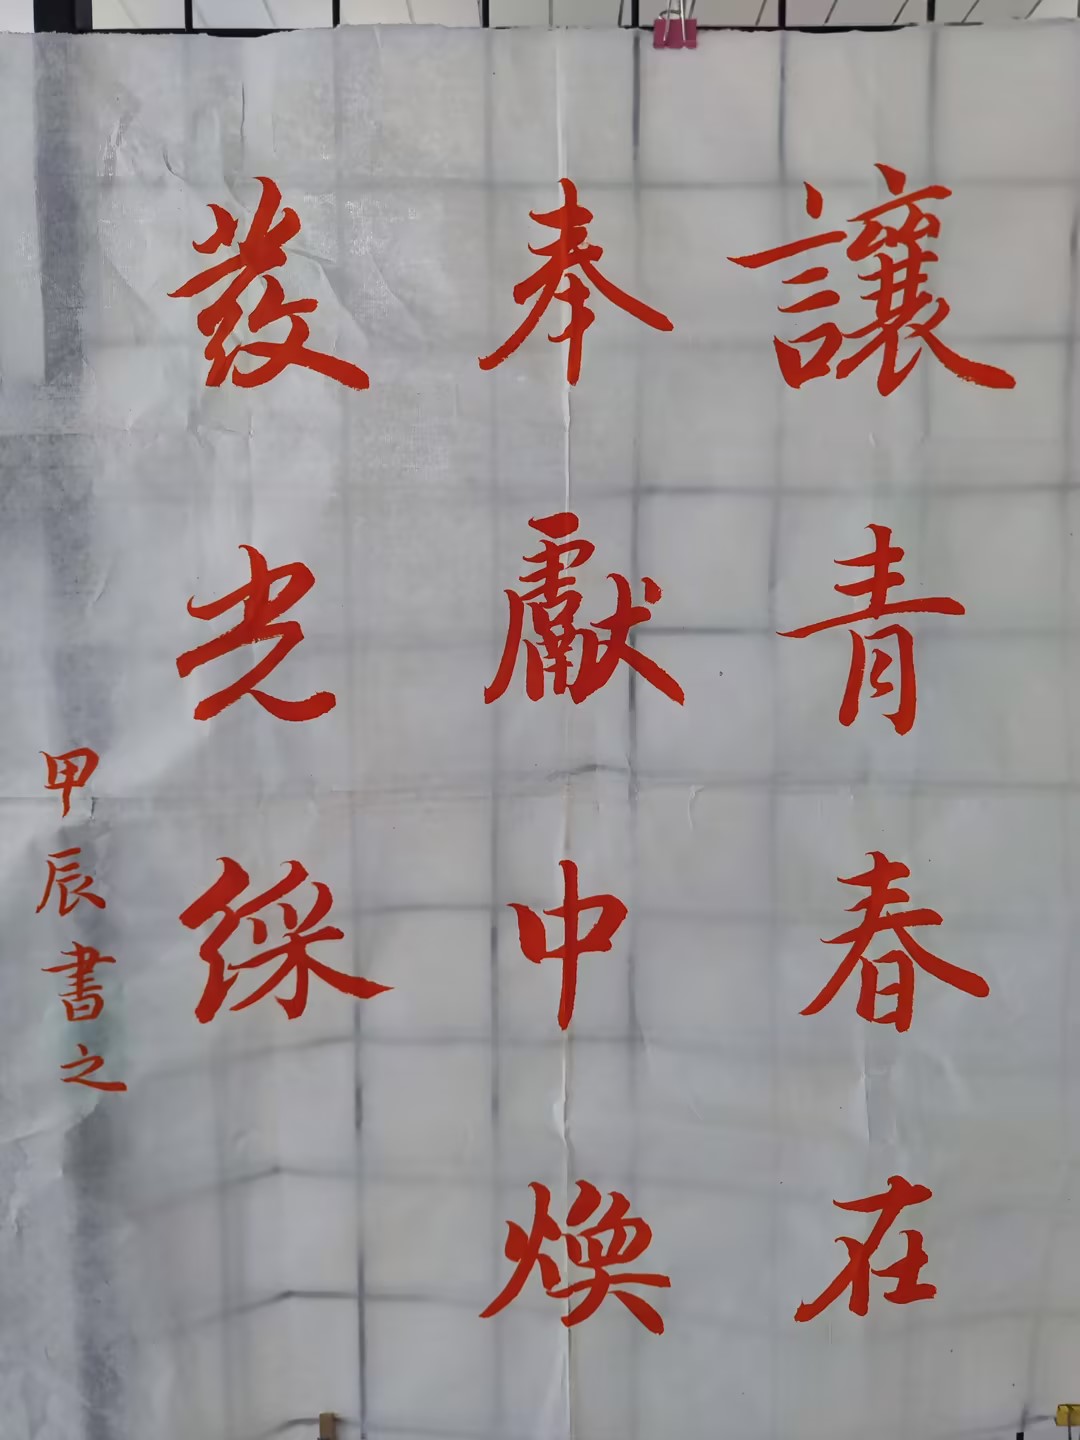 讓青春在
奉獻中煥
發光綵
甲辰書之